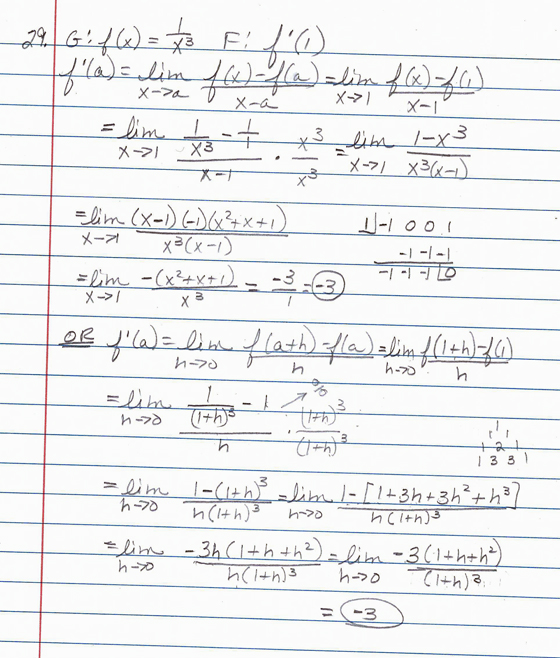 29. G: f(x) = 1/x³ F: f'(1)
f'(a) = lim x→a (f(x) - f(a))/(x-a) = lim x→1 (f(x) - f(1))/(x-1)
= lim x→1 (1/x³ - 1/1)/(x-1) · x³/x³ = lim x→1 (1-x³)/(x³(x-1))
= lim x→1 ((x-1)(-1)(x²+x+1))/(x³(x-1)) 1 | -1 0 0 1
-1 -1 -1
-1 -1 -1 | 0
= lim x→1 (-(x²+x+1))/x³ = -3/1 = -3
OR f'(a) = lim h→0 (f(a+h) - f(a))/h = lim h→0 (f(1+h) - f(1))/h
= lim h→0 (1/(1+h)³ - 1)/h · (1+h)³/(1+h)³ → 0/0
1 1
1 2 1
1 3 3 1
= lim h→0 (1-(1+h)³)/(h(1+h)³) = lim h→0 (1-[1+3h+3h²+h³])/(h(1+h)³)
= lim h→0 (-3h(1+h+h²))/(h(1+h)³) = lim h→0 (-3(1+h+h²))/((1+h)³)
= -3